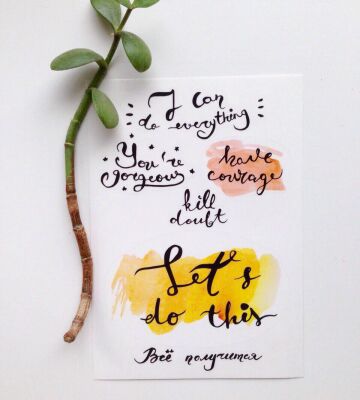 I can
do everything
You're
gorgeous
have
courage
kill
doubt
Let's
do this
Всё получится